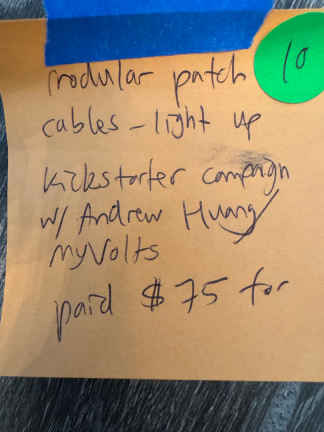 modular patch
10
cables - light up
Kickstarter campaign
w/ Andrew Huang
myVolts
paid $75 for